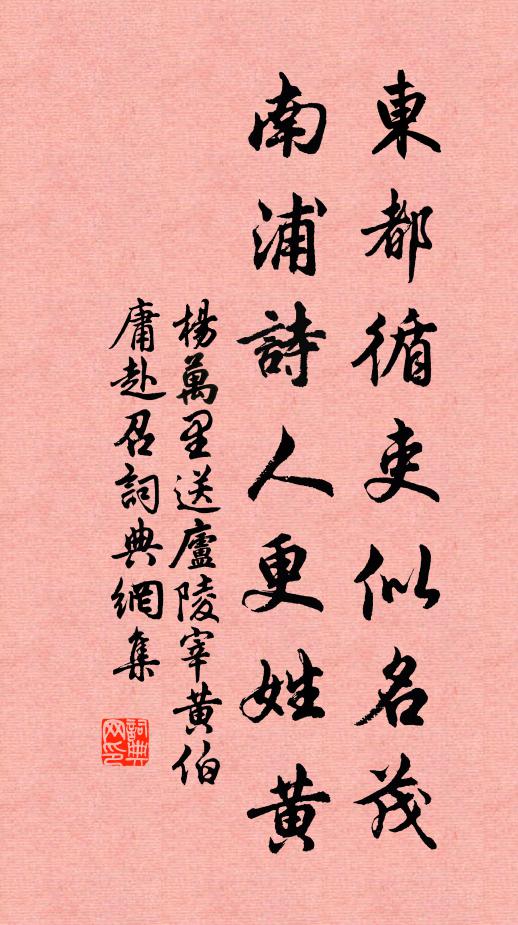 東都循吏似名茂
南浦詩人更姓黃
楊萬里送廬陵宰黃伯
庸赴召詞典網集
詞典
网印